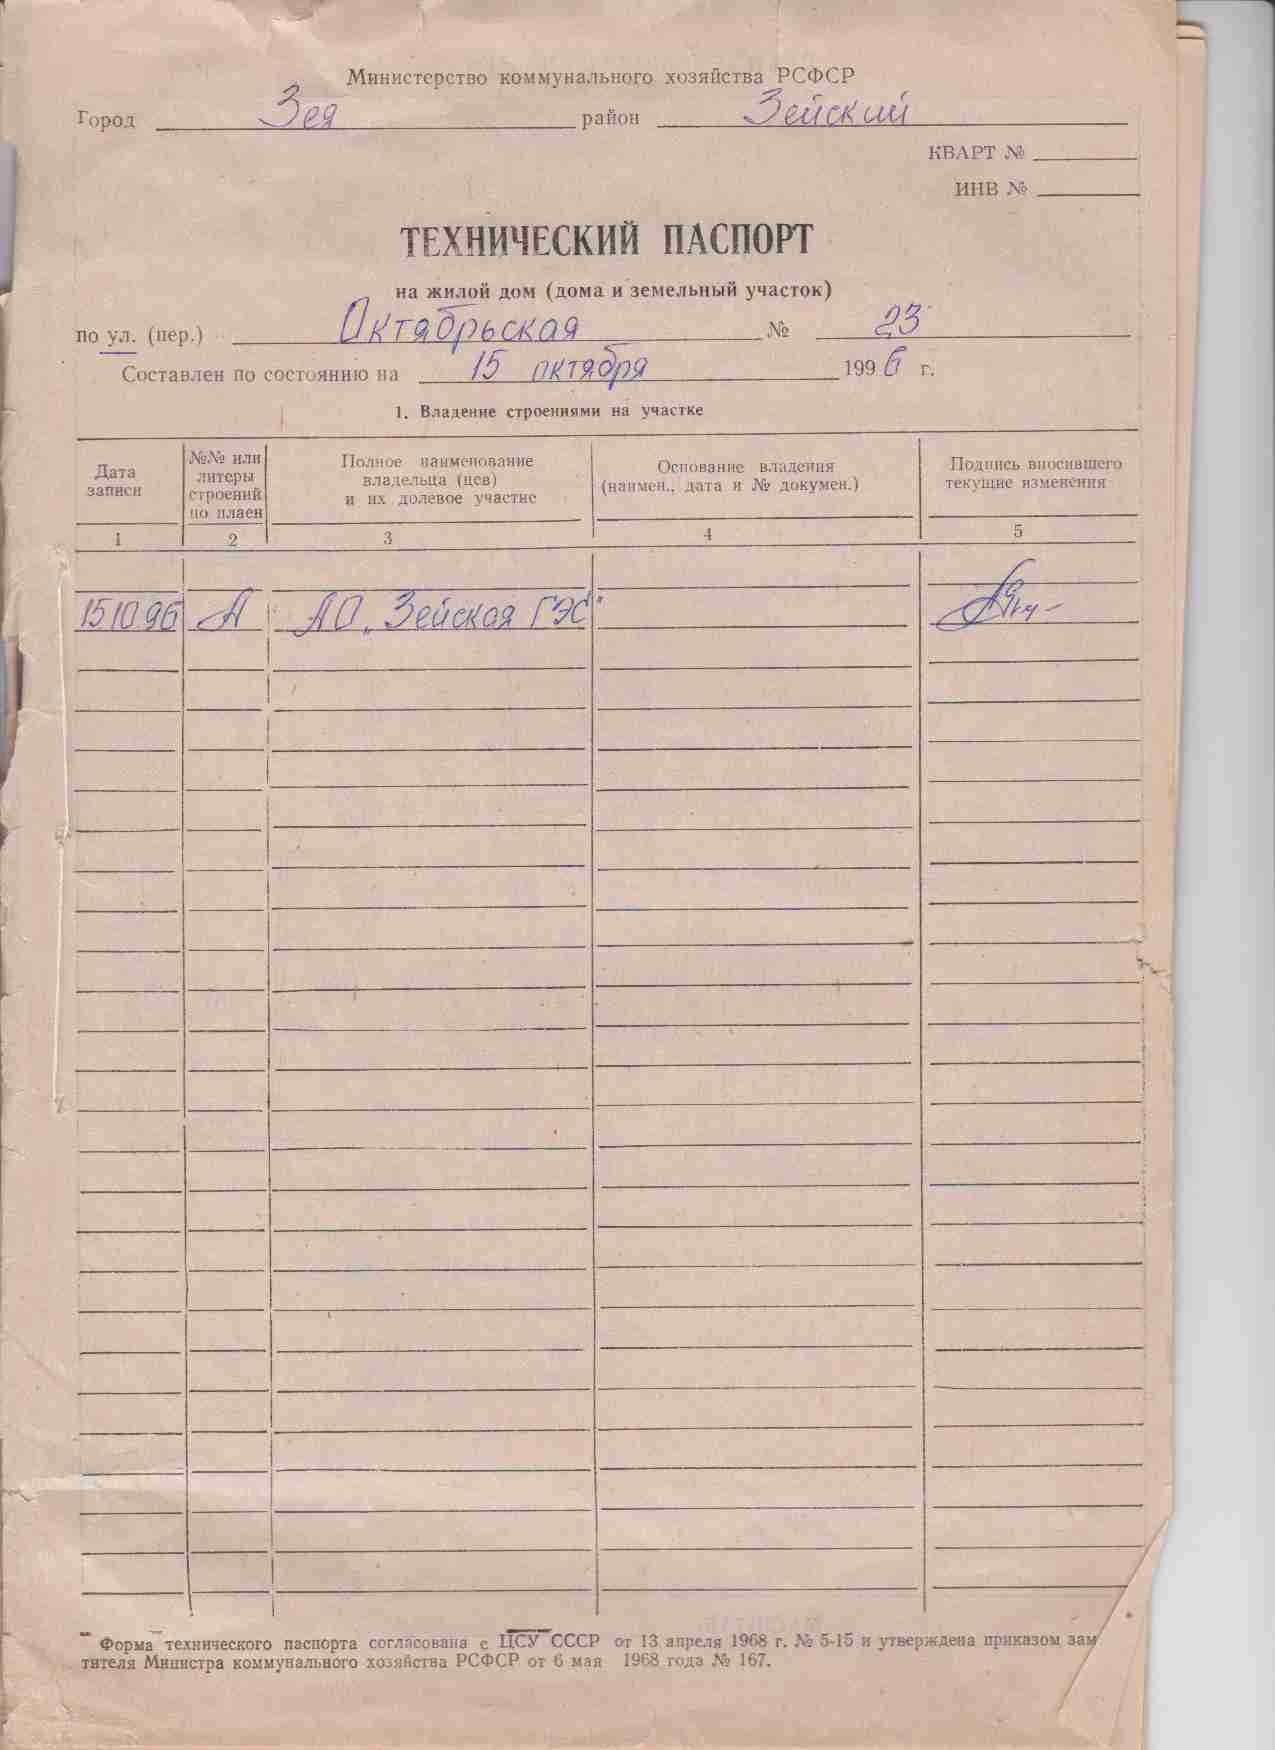 Министерство коммунального хозяйства РСФСР
Город Зея район Зейский
КВАРТ №
ИНВ №
ТЕХНИЧЕСКИЙ ПАСПОРТ
на жилой дом (дома и земельный участок)
по ул. (пер.) Октябрьская № 23
Составлен по состоянию на 15 октября 1996 г.
1. Владение строениями на участке
Дата записи
№№ или литеры строений по плаен
Полное наименование владельца (цев) и их долевое участие
Основание владения (наимен., дата и № докумен.)
Подпись вносившего текущие изменения
1 2 3 4 5
15 10 96 А АО „Зейская ГЭС"
Форма технического паспорта согласована с ЦСУ СССР от 13 апреля 1968 г. № 5-15 и утверждена приказом зам
тителя Министра коммунального хозяйства РСФСР от 6 мая 1968 года № 167.